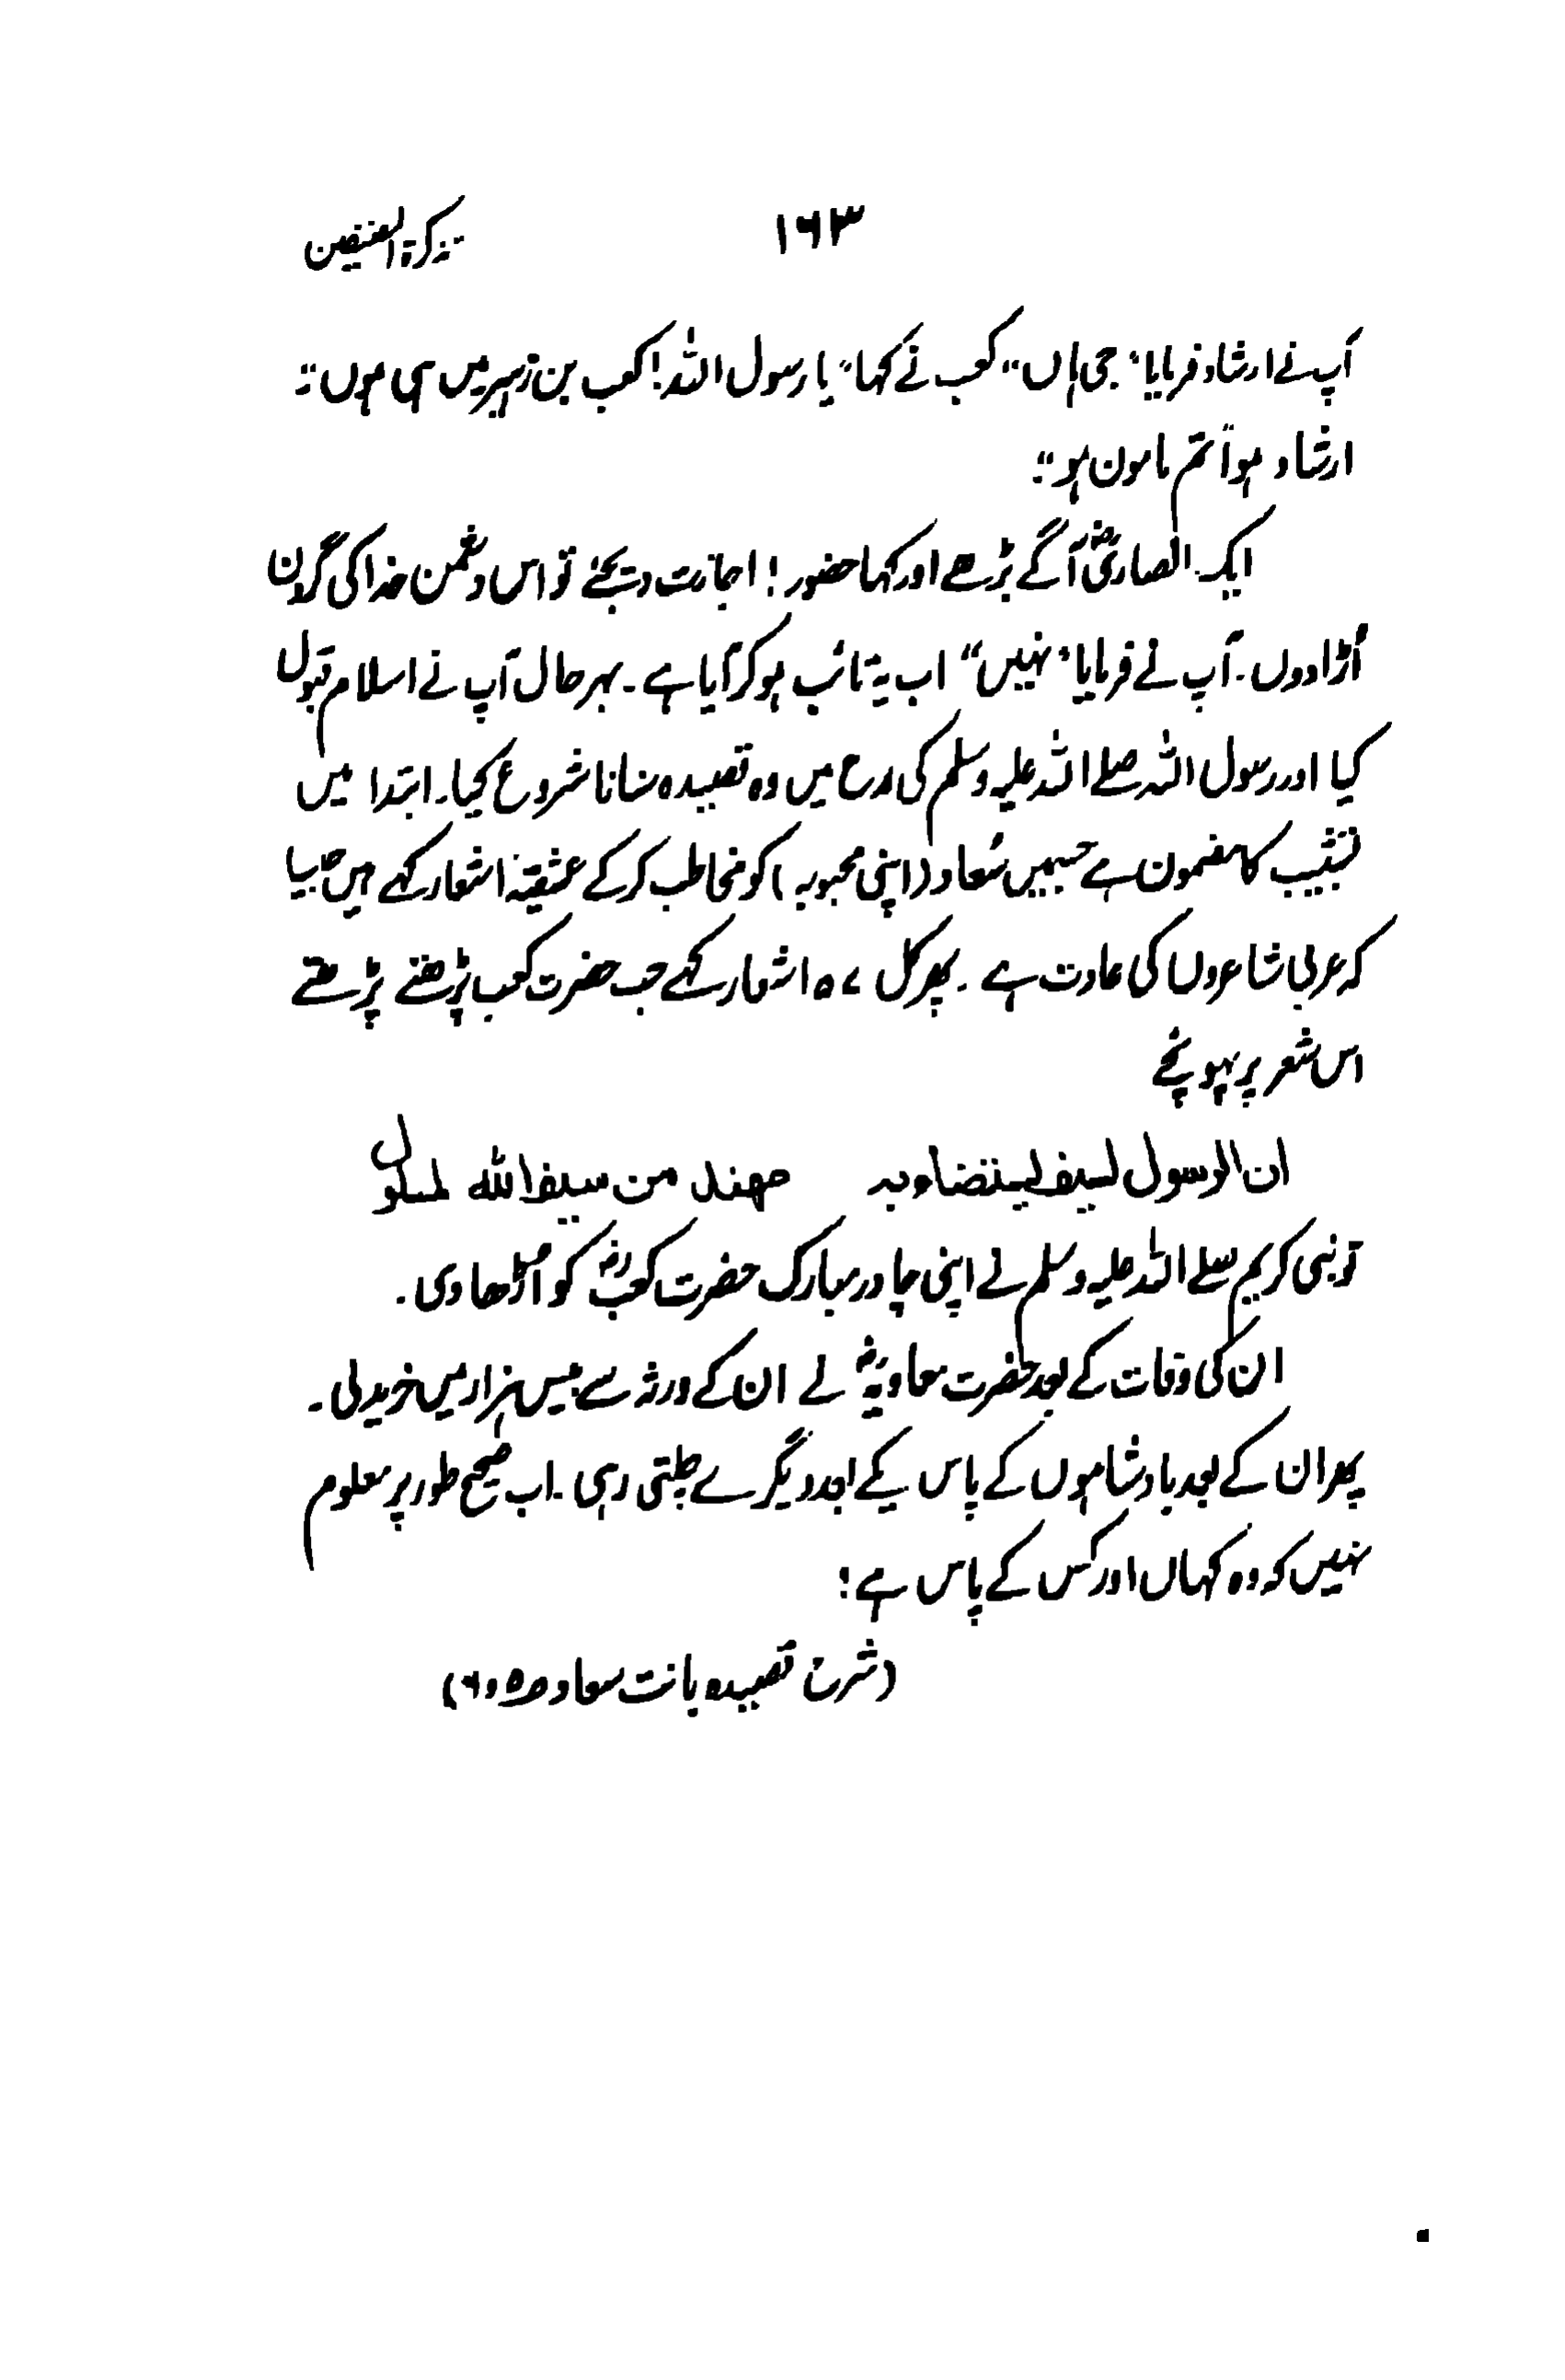 ۱۶۳ تذکرۃ المصنفین
آپ نے ارشاد فرمایا "جی ہاں" کعب نے کہا "یا رسول اللہ! کعب بن زہیر میں ہی ہوں"
ارشاد ہوا "تم مامون ہو"
ایک انصاریؓ آگے بڑھے اور کہا حضور! اجازت دیجئے تو اس دشمن خدا کی گردن
اُڑا دوں۔ آپ نے فرمایا "نہیں" اب یہ تائب ہو کر آیا ہے۔ بہرحال آپ نے اسلام قبول
کیا اور رسول اللہ صلے اللہ علیہ وسلم کی مدح میں وہ قصیدہ سنانا شروع کیا۔ ابتدا میں
تشبیب کا مضمون ہے جسمیں سُعاد (اپنی محبوبہ) کو مخاطب کر کے عشقیہ اشعار کہے ہیں جیسا
کہ عربی شاعروں کی عادت ہے۔ پھر کل ۵۷ اشعار کہے جب حضرت کعب پڑھتے پڑھتے
اس شعر پر پہونچے
ان الرسول لسیف لیستضاء بہ مہند من سیف اللہ لمسلول
تو نبی کریم صلے اللہ علیہ وسلم نے اپنی چادر مبارک حضرت کعبؓ کو اُڑھا دی۔
ان کی وفات کے بعد حضرت معاویہؓ نے ان کے ورثہ سے بیس ہزار میں خرید لی۔
پھر ان کے بعد بادشاہوں کے پاس یکے بعد دیگرے چلتی رہی۔ اب صحیح طور پر معلوم
نہیں کہ وہ کہاں اور کس کے پاس ہے!
(شرح قصیدہ بانت سعاد ص۵ و ۶)